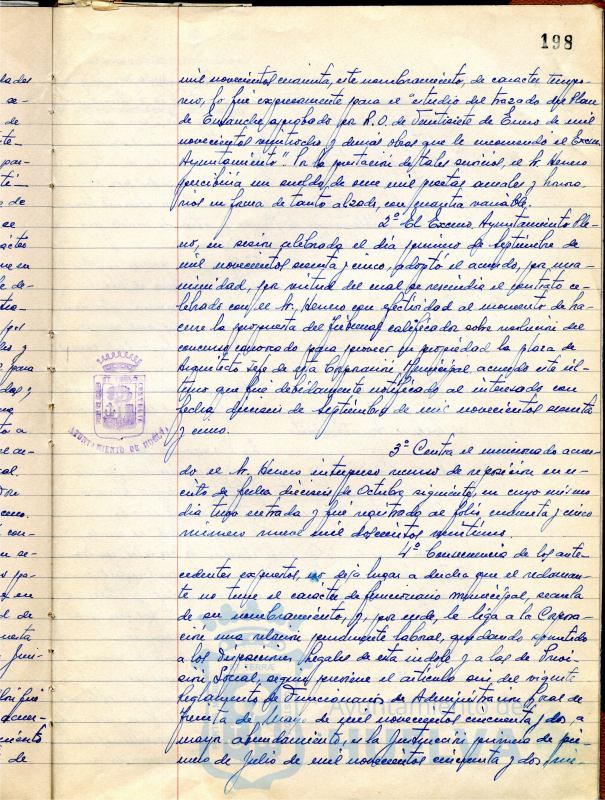 198
mil novecientos cuarenta, este nombramiento, de caracter tempo-
ral, lo fué expresamente para el "estudio del trazado del Plan
de Ensanche aprobado por R.O. de Veintisiete de Enero de mil
novecientos veintiocho y demás obras que le encomiende el Excmo.
Ayuntamiento". Por la prestación de tales servicios, el Sr. Herrero
percibiría un sueldo de once mil pesetas anuales y honora-
rios en forma de tanto alzado, con cuantía variable.
2º El Excmo. Ayuntamiento Ple-
no, en sesión celebrada el día primero de Septiembre de
mil novecientos sesenta y cinco, adoptó el acuerdo, por una-
nimidad, por virtud del cual se rescindía el contrato ce-
lebrado con el Sr. Herrero con efectividad al momento de ha-
cerse la propuesta del Tribunal calificador sobre resolución del
concurso convocado para proveer en propiedad la plaza de
Arquitecto Jefe de esta Corporación Municipal acuerdo este úl-
timo que fué debidamente notificado al interesado con
fecha dieciseis de Septiembre de mil novecientos sesenta
y cinco.
3º Contra el mencionado acuer-
do el Sr. Herrero interpuso recurso de reposición en es-
crito de fecha dieciseis de Octubre siguiente, en cuyo mismo
día tuvo entrada y fué registrado al folio cincuenta y cinco
número nueve mil doscientos veintiseis.
4º Consecuencia de los ante-
cedentes expuestos, no deja lugar a dudas que el reclaman-
te no tiene el caracter de funcionario municipal, secuela
de su nombramiento, y, por ende, le liga a la Corpora-
ción una relación puramente laboral, quedando sometido
a las disposiciones legales de esta índole y a las de Previ-
sión Social, según previene el artículo seis, del vigente
Reglamento de Funcionarios de Administración Local de
treinta de Mayo de mil novecientos cincuenta y dos, a
mayor abundamiento, en la Instrucción primera de pri-
mero de Julio de mil novecientos cincuenta y dos
AYUNTAMIENTO DE HUELVA
Ayuntamiento de
HUELVA